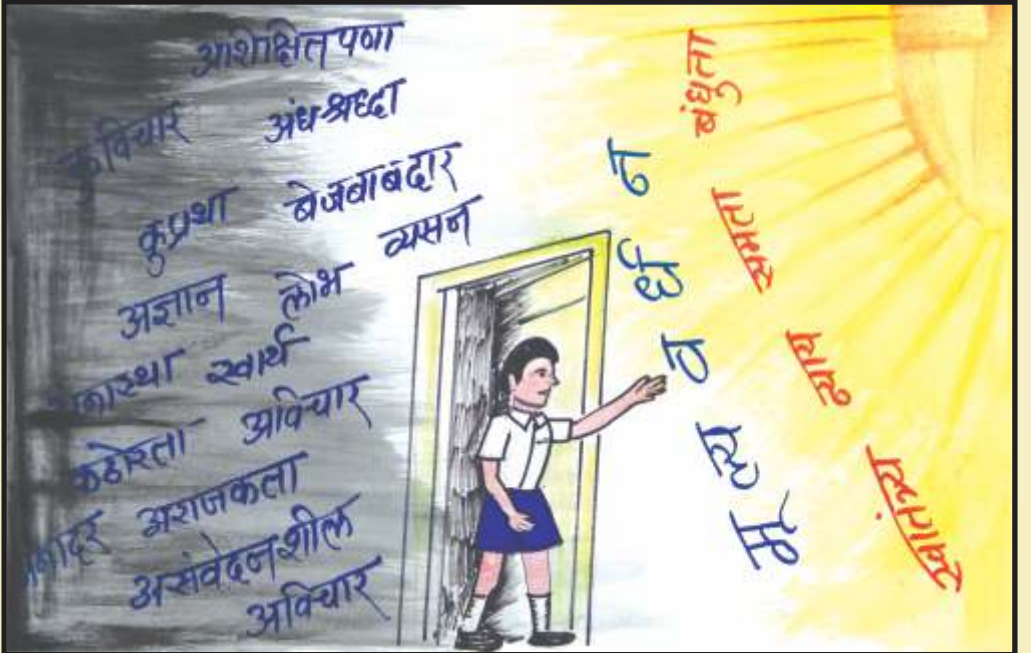 अशिक्षितपणा
कुविचार अंधश्रध्दा
कुप्रथा बेजबाबदार
व्यसन
अज्ञान लोभ
अनास्था स्वार्थ
कठोरता अविचार
अनादर अराजकता
असंवेदनशील
अविचार
मूल्यवर्धन
बंधुता
समता
न्याय
स्वातंत्र्य